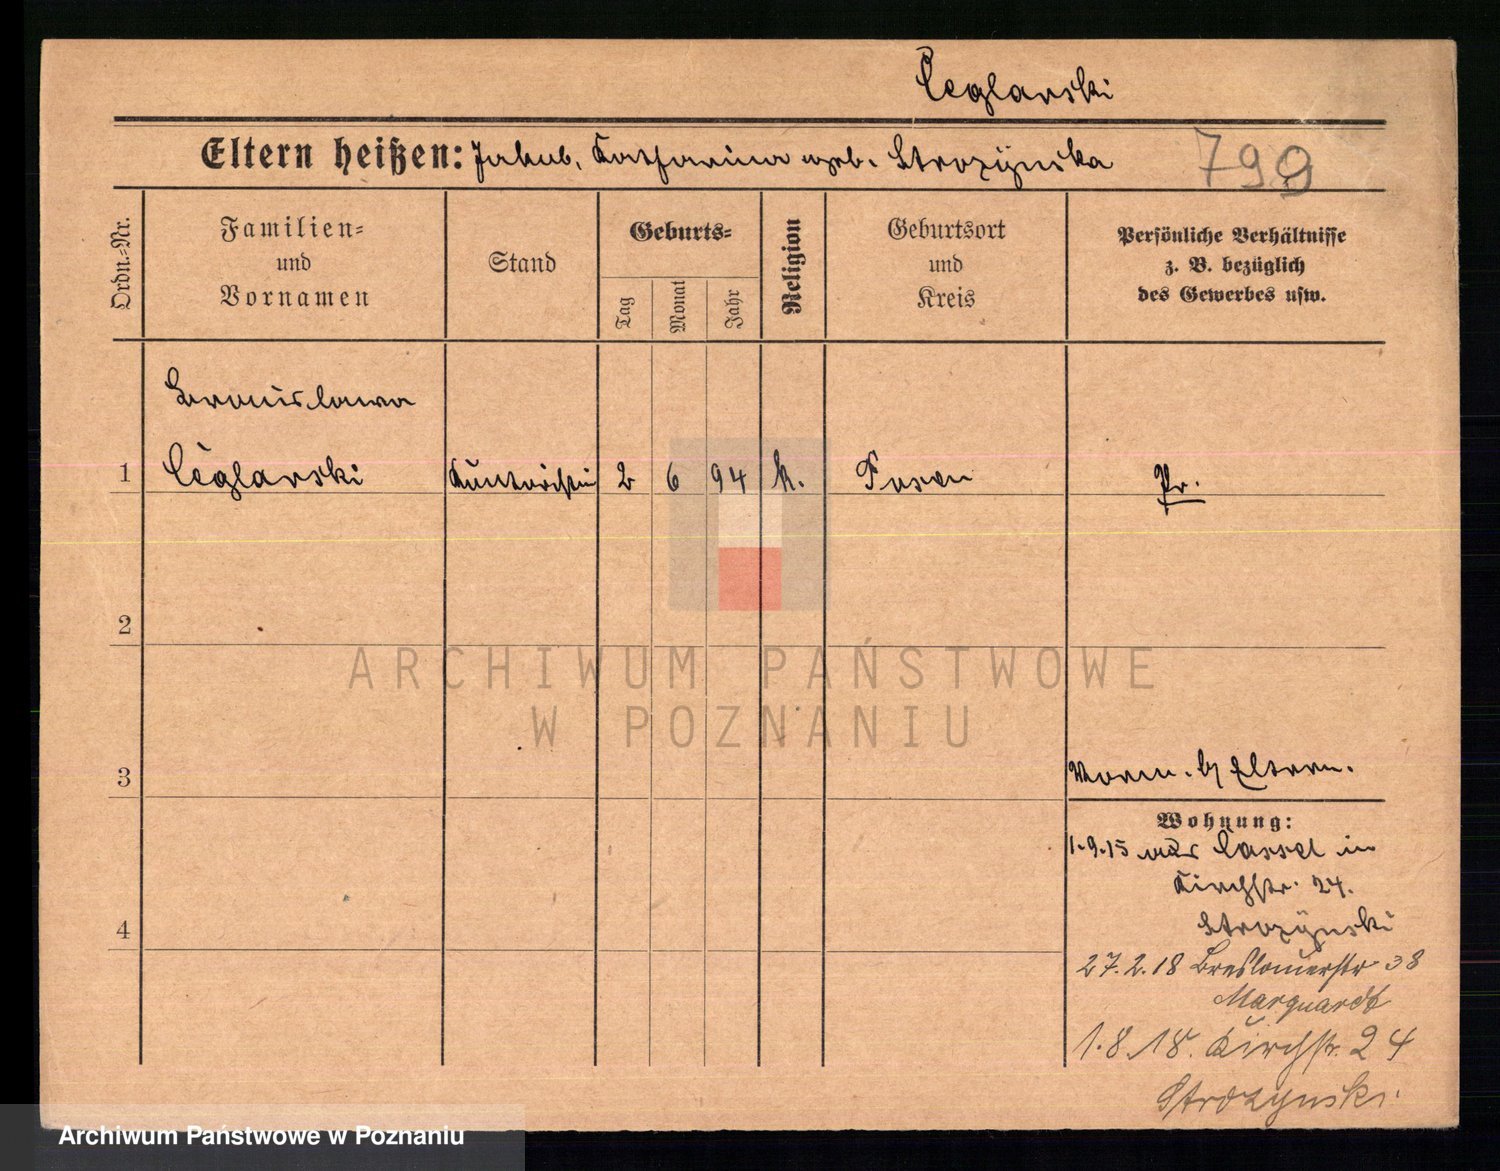 Ceglarski
Eltern heißen: Jakub, Katharina geb. Strozÿnska
799
Ordn.-Nr.
Familien-
und
Vornamen
Stand
Geburts-
Tag
Monat
Jahr
Religion
Geburtsort
und
Kreis
Persönliche Verhältnisse
z. B. bezüglich
des Gewerbes usw.
Bronislawa
1 Ceglarski Kontoristin 2 6 94 k. Posen Pr.
2
ARCHIWUM PAŃSTWOWE
W POZNANIU
3
Vorm. b/ Eltern.
Wohnung:
1.9.15 aus Cassel in
Kirchstr. 24.
Strozÿnski
4
27.2.18 Breslauerstr 38
Marquardt
1.8.18. Kirchstr. 24
Strozynski.
Archiwum Państwowe w Poznaniu